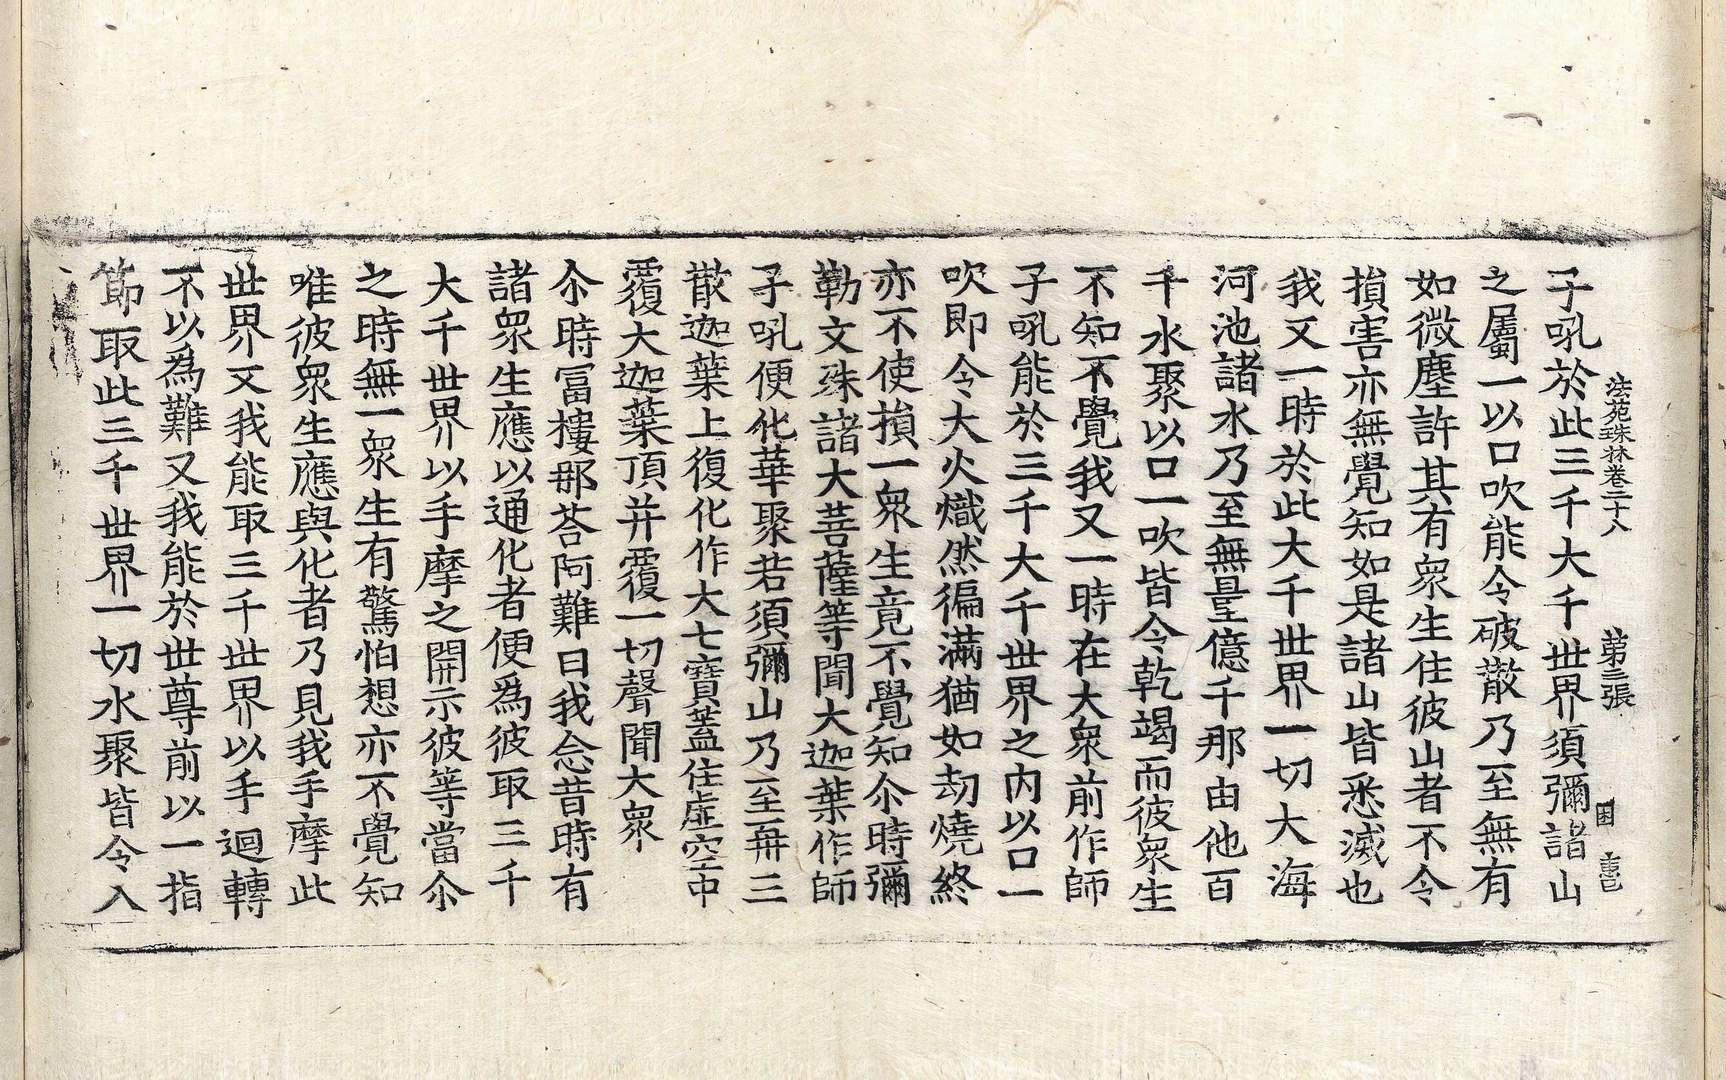 法苑珠林卷二十八 第三張 困
子吼於此三千大千世界須彌諸山
之屬一以口吹能令破散乃至無有
如微塵許其有衆生住彼山者不令
損害亦無覺知如是諸山皆悉滅也
我又一時於此大千世界一切大海
河池諸水乃至無量億千那由他百
千水聚以口一吹皆令乾竭而彼衆生
不知不覺我又一時在大衆前作師
子吼能於三千大千世界之内以口一
吹即令大火熾然徧滿猶如劫燒終
亦不使損一衆生竟不覺知尒時彌
勒文殊諸大菩薩等聞大迦葉作師
子吼便化華聚若須彌山乃至再三
散迦葉上復化作大七寶蓋住虛空中
覆大迦葉頂并覆一切聲聞大衆
尒時冨樓那荅阿難曰我念昔時有
諸衆生應以通化者便爲彼取三千
大千世界以手摩之開示彼等當尒
之時無一衆生有驚怕想亦不覺知
唯彼衆生應與化者乃見我手摩此
世界又我能取三千世界以手迴轉
不以為難又我能於世尊前以一指
節取此三千世界一切水聚皆令入